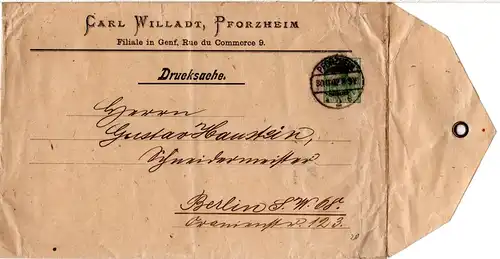 CARL WILLADT, PFORZHEIM
Filiale in Genf, Rue du Commerce 9.
Drucksache.
Herrn
Gustav Haustein,
Schneidermeister
Berlin S. W. 68.
Oranienstr. 123.